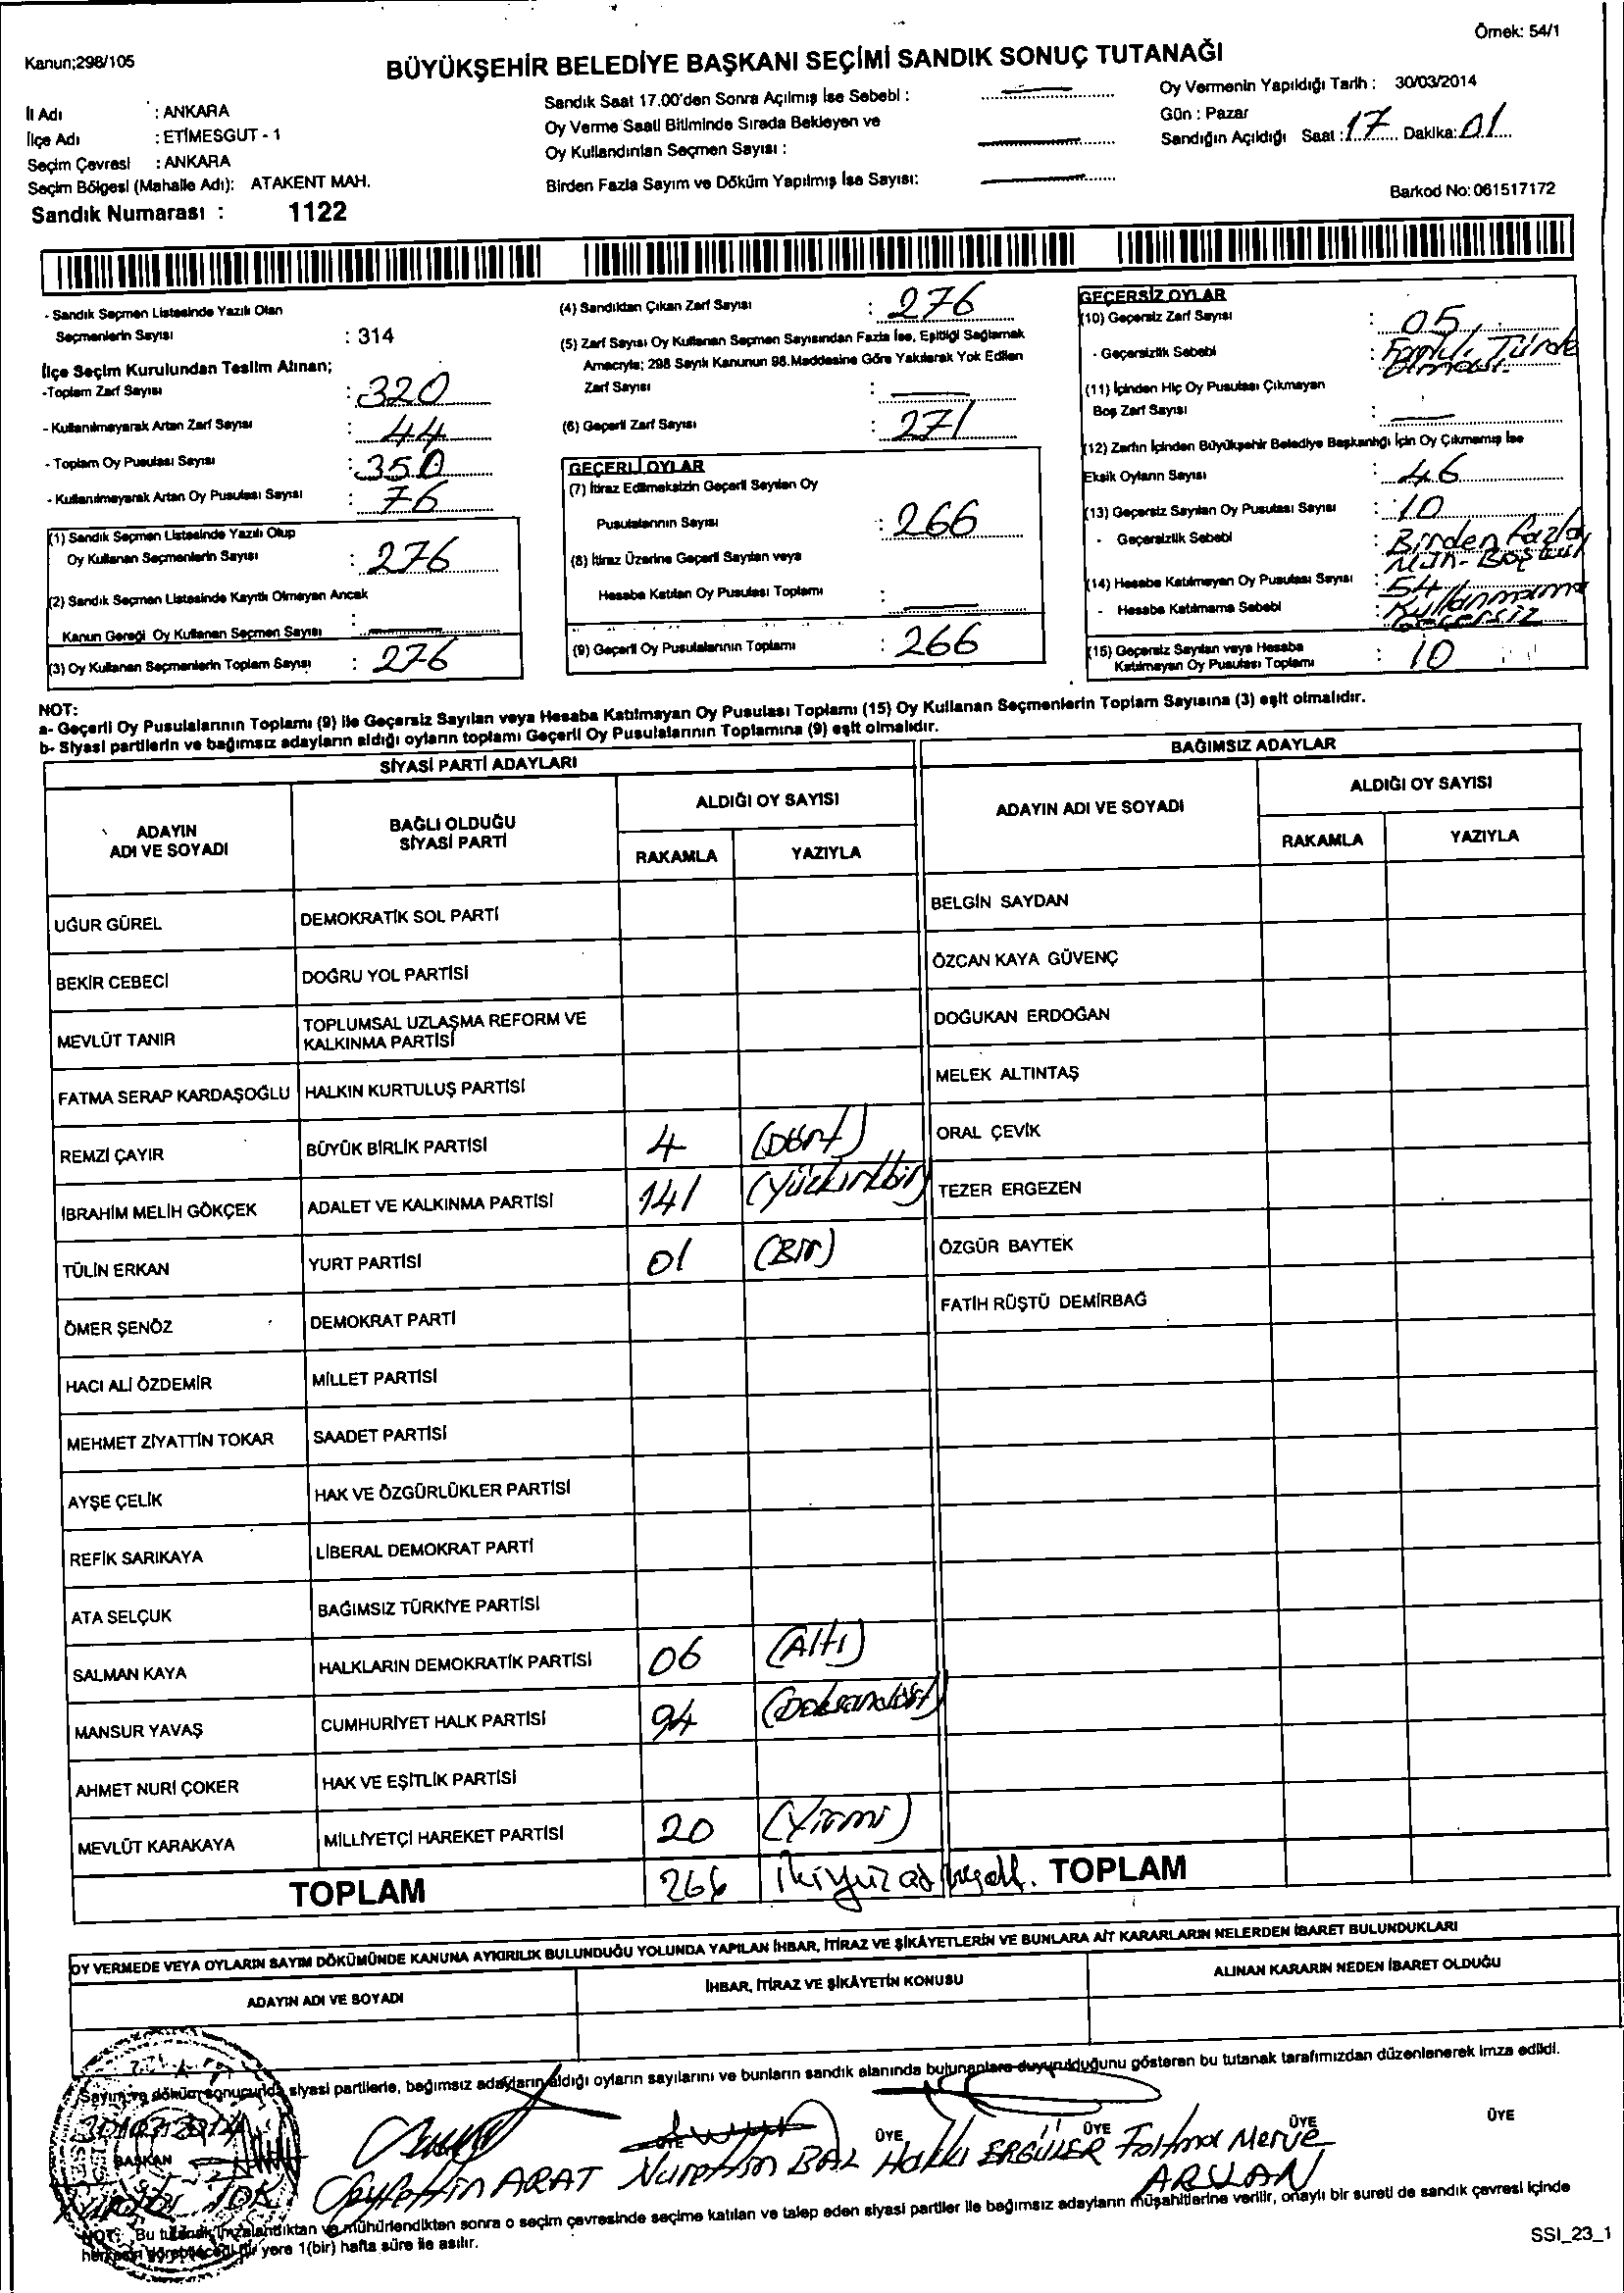 Örnek: 54/1
Kanun;298/105
BÜYÜKŞEHİR BELEDİYE BAŞKANI SEÇİMİ SANDIK SONUÇ TUTANAĞI
İl Adı : ANKARA
İlçe Adı : ETİMESGUT - 1
Seçim Çevresi : ANKARA
Seçim Bölgesi (Mahalle Adı): ATAKENT MAH.
Sandık Numarası : 1122
Sandık Saat 17.00'den Sonra Açılmış İse Sebebi :
Oy Verme Saati Bitiminde Sırada Bekleyen ve
Oy Kullandırılan Seçmen Sayısı :
Birden Fazla Sayım ve Döküm Yapılmış İse Sayısı:
Oy Vermenin Yapıldığı Tarih : 30/03/2014
Gün : Pazar
Sandığın Açıldığı Saat : 17 Dakika: 01
Barkod No: 061517172
- Sandık Seçmen Listesinde Yazılı Olan
Seçmenlerin Sayısı : 314
İlçe Seçim Kurulundan Teslim Alınan;
-Toplam Zarf Sayısı : 320
- Kullanılmayarak Artan Zarf Sayısı : 44
- Toplam Oy Pusulası Sayısı : 350
- Kullanılmayarak Artan Oy Pusulası Sayısı : 76
(1) Sandık Seçmen Listesinde Yazılı Olup
Oy Kullanan Seçmenlerin Sayısı : 276
(2) Sandık Seçmen Listesinde Kayıtlı Olmayan Ancak
Kanun Gereği Oy Kullanan Seçmen Sayısı :
(3) Oy Kullanan Seçmenlerin Toplam Sayısı : 276
(4) Sandıktan Çıkan Zarf Sayısı : 276
(5) Zarf Sayısı Oy Kullanan Seçmen Sayısından Fazla İse, Eşitliği Sağlamak
Amacıyla; 298 Sayılı Kanunun 98.Maddesine Göre Yakılarak Yok Edilen
Zarf Sayısı :
(6) Geçerli Zarf Sayısı : 271
GEÇERLİ OYLAR
(7) İtiraz Edilmeksizin Geçerli Sayılan Oy
Pusulalarının Sayısı : 266
(8) İtiraz Üzerine Geçerli Sayılan veya
Hesaba Katılan Oy Pusulası Toplamı :
(9) Geçerli Oy Pusulalarının Toplamı : 266
GEÇERSİZ OYLAR
(10) Geçersiz Zarf Sayısı : 05
- Geçersizlik Sebebi : Farklı Türde
Olması.
(11) İçinden Hiç Oy Pusulası Çıkmayan
Boş Zarf Sayısı :
(12) Zarfın İçinden Büyükşehir Belediye Başkanlığı İçin Oy Çıkmamış İse
Eksik Oyların Sayısı : 46
(13) Geçersiz Sayılan Oy Pusulası Sayısı : 10
- Geçersizlik Sebebi : Birden fazla
(14) Hesaba Katılmayan Oy Pusulası Sayısı : 54
- Hesaba Katılmama Sebebi : Kullanmama
Geçersiz
(15) Geçersiz Sayılan veya Hesaba
Katılmayan Oy Pusulası Toplamı : 10
NOT:
a- Geçerli Oy Pusulalarının Toplamı (9) ile Geçersiz Sayılan veya Hesaba Katılmayan Oy Pusulası Toplamı (15) Oy Kullanan Seçmenlerin Toplam Sayısına (3) eşit olmalıdır.
b- Siyasi partilerin ve bağımsız adayların aldığı oyların toplamı Geçerli Oy Pusulalarının Toplamına (9) eşit olmalıdır.
SİYASİ PARTİ ADAYLARI
BAĞIMSIZ ADAYLAR
ADAYIN
ADI VE SOYADI
BAĞLI OLDUĞU
SİYASİ PARTİ
ALDIĞI OY SAYISI
RAKAMLA YAZIYLA
ADAYIN ADI VE SOYADI
ALDIĞI OY SAYISI
RAKAMLA YAZIYLA
UĞUR GÜREL DEMOKRATİK SOL PARTİ BELGİN SAYDAN
BEKİR CEBECİ DOĞRU YOL PARTİSİ ÖZCAN KAYA GÜVENÇ
MEVLÜT TANIR TOPLUMSAL UZLAŞMA REFORM VE
KALKINMA PARTİSİ DOĞUKAN ERDOĞAN
FATMA SERAP KARDAŞOĞLU HALKIN KURTULUŞ PARTİSİ MELEK ALTINTAŞ
REMZİ ÇAYIR BÜYÜK BİRLİK PARTİSİ 4 (Dört) ORAL ÇEVİK
İBRAHİM MELİH GÖKÇEK ADALET VE KALKINMA PARTİSİ 141 (Yüzkırkbir) TEZER ERGEZEN
TÜLİN ERKAN YURT PARTİSİ 01 (Bir) ÖZGÜR BAYTEK
ÖMER ŞENÖZ DEMOKRAT PARTİ FATİH RÜŞTÜ DEMİRBAĞ
HACI ALİ ÖZDEMİR MİLLET PARTİSİ
MEHMET ZİYATTİN TOKAR SAADET PARTİSİ
AYŞE ÇELİK HAK VE ÖZGÜRLÜKLER PARTİSİ
REFİK SARIKAYA LİBERAL DEMOKRAT PARTİ
ATA SELÇUK BAĞIMSIZ TÜRKİYE PARTİSİ
SALMAN KAYA HALKLARIN DEMOKRATİK PARTİSİ 06 (Altı)
MANSUR YAVAŞ CUMHURİYET HALK PARTİSİ 94 (Doksandört)
AHMET NURİ ÇOKER HAK VE EŞİTLİK PARTİSİ
MEVLÜT KARAKAYA MİLLİYETÇİ HAREKET PARTİSİ 20 (Yirmi)
TOPLAM 266 ikiyüz TOPLAM
OY VERMEDE VEYA OYLARIN SAYIM DÖKÜMÜNDE KANUNA AYKIRILIK BULUNDUĞU YOLUNDA YAPILAN İHBAR, İTİRAZ VE ŞİKÂYETLERİN VE BUNLARA AİT KARARLARIN NELERDEN İBARET BULUNDUKLARI
ADAYIN ADI VE SOYADI İHBAR, İTİRAZ VE ŞİKÂYETİN KONUSU ALINAN KARARIN NEDEN İBARET OLDUĞU
Sayım ve döküm sonucunda siyasi partilerle, bağımsız adayların aldığı oyların sayılarını ve bunların sandık alanında bulunanlara duyurulduğunu gösteren bu tutanak tarafımızdan düzenlenerek imza edildi.
BAŞKAN ÜYE ÜYE ÜYE ÜYE ÜYE
ARAT Nurettin BAL Hakkı ERGÜLER Fatma Merve
ARSLAN
NOT: Bu tutanak imzalandıktan ve mühürlendikten sonra o seçim çevresinde seçime katılan ve talep eden siyasi partiler ile bağımsız adayların müşahitlerine verilir, onaylı bir sureti de sandık çevresi içinde
herkesin görebileceği bir yere 1(bir) hafta süre ile asılır.
SSI_23_1